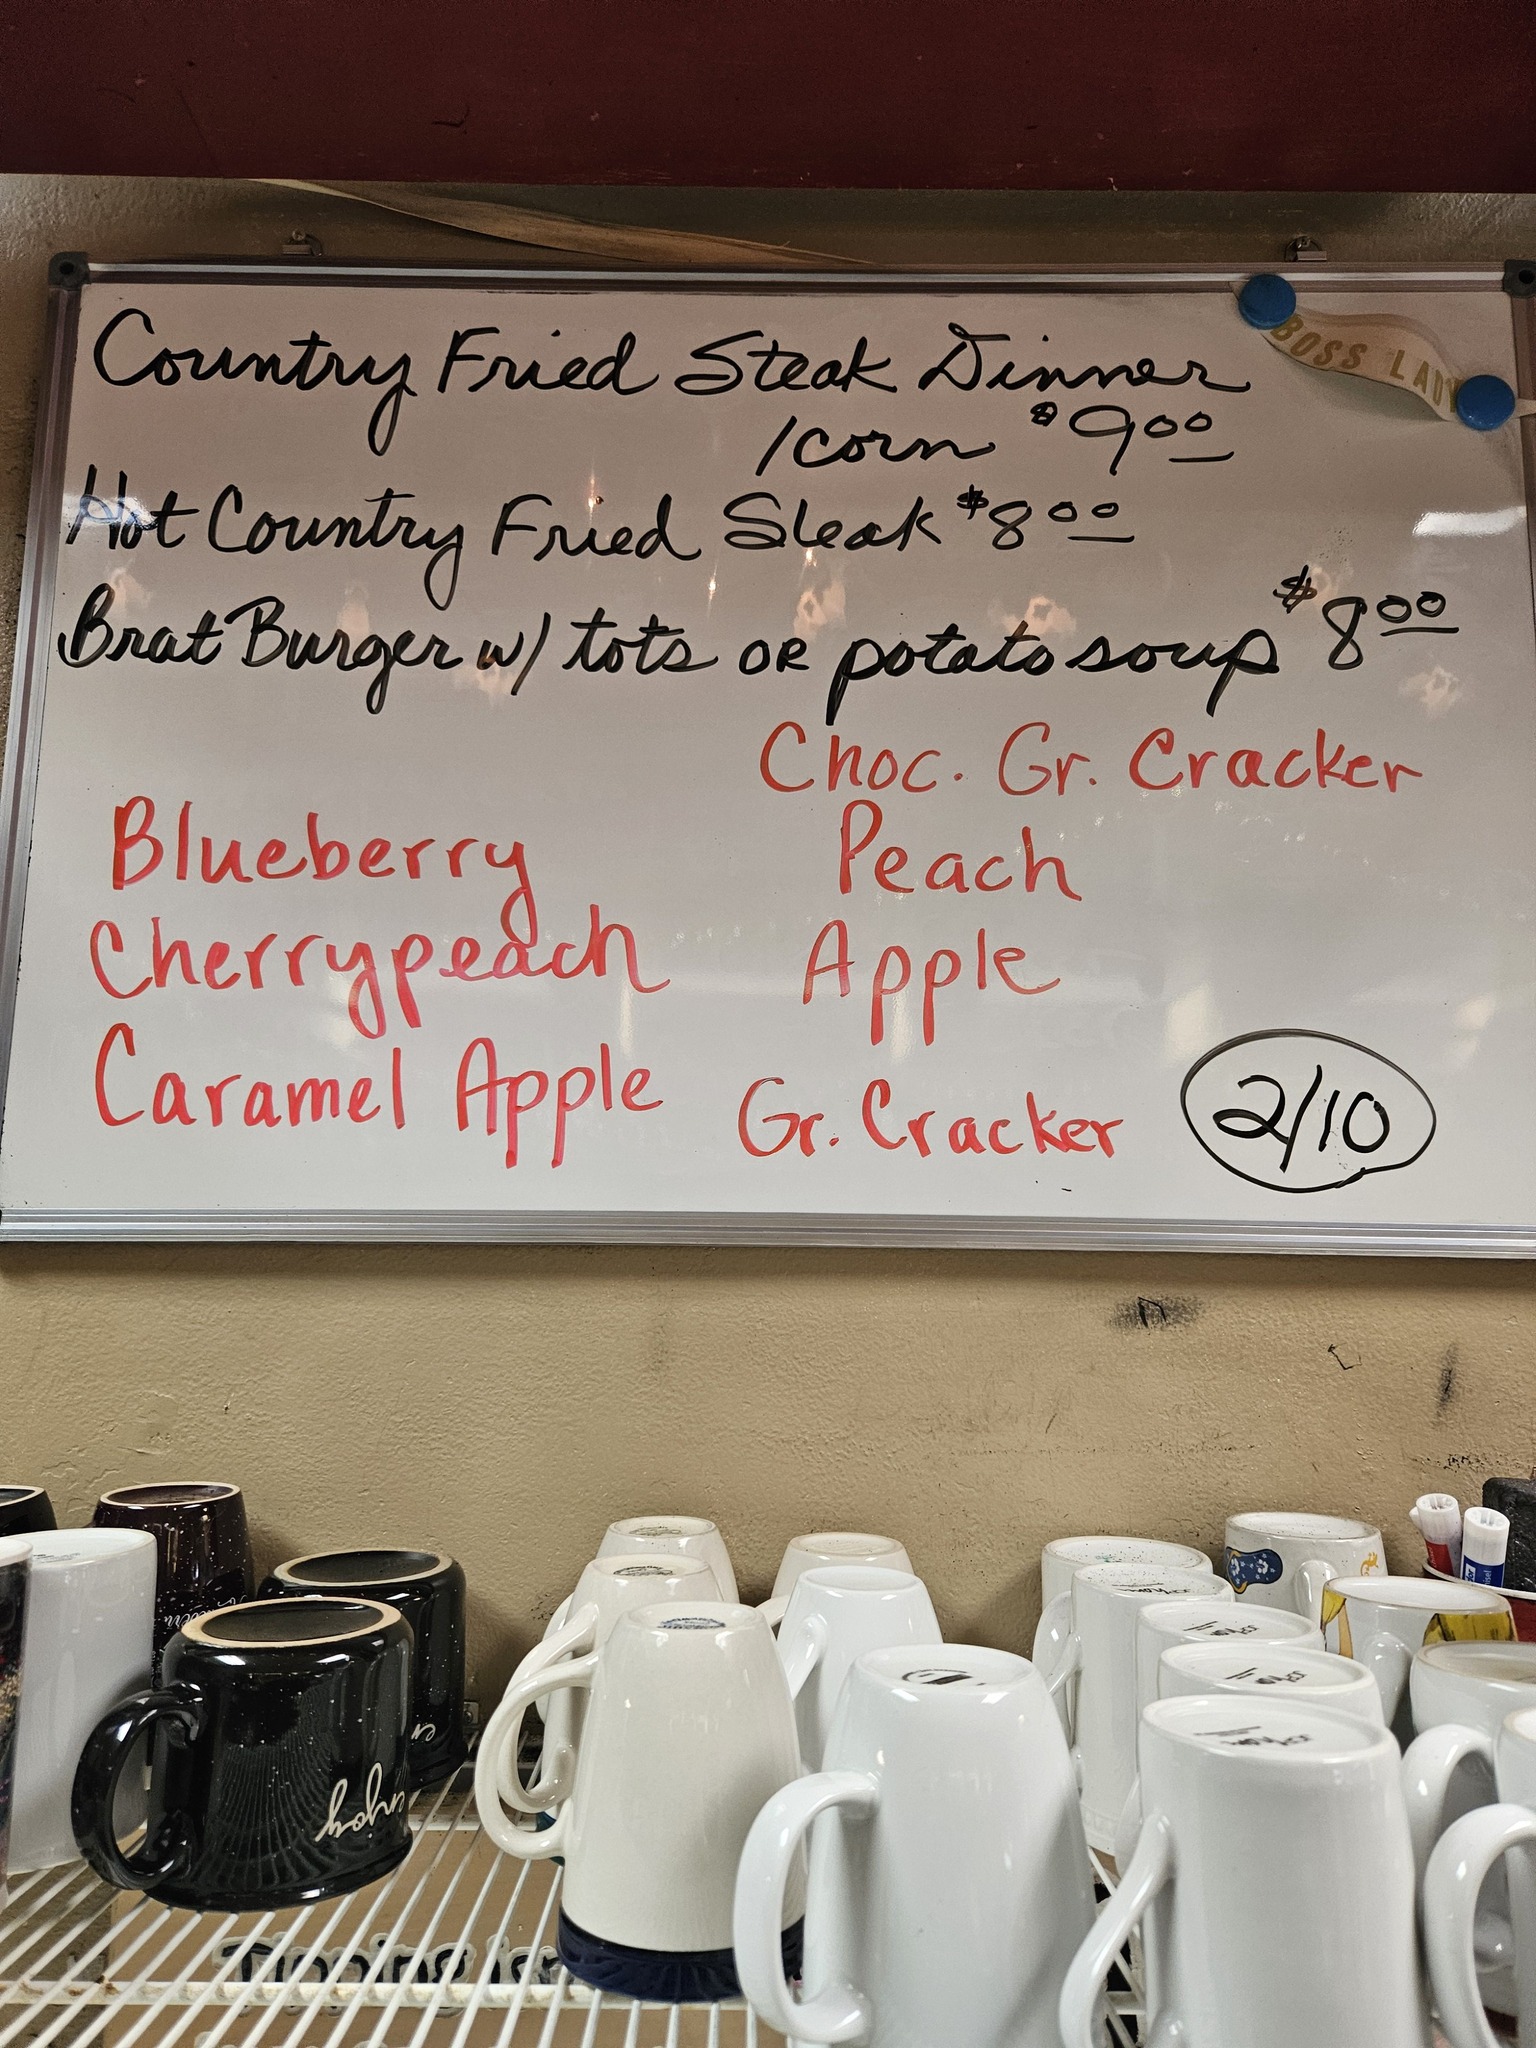 BOSS LADY
Country Fried Steak Dinner
/corn $9.00
Hot Country Fried Steak $8.00
Brat Burger w/ tots OR potato soup $8.00
Choc. Gr. Cracker
Blueberry
Peach
Cherrypeach
Apple
Caramel Apple
Gr. Cracker
2/10
Tipping is